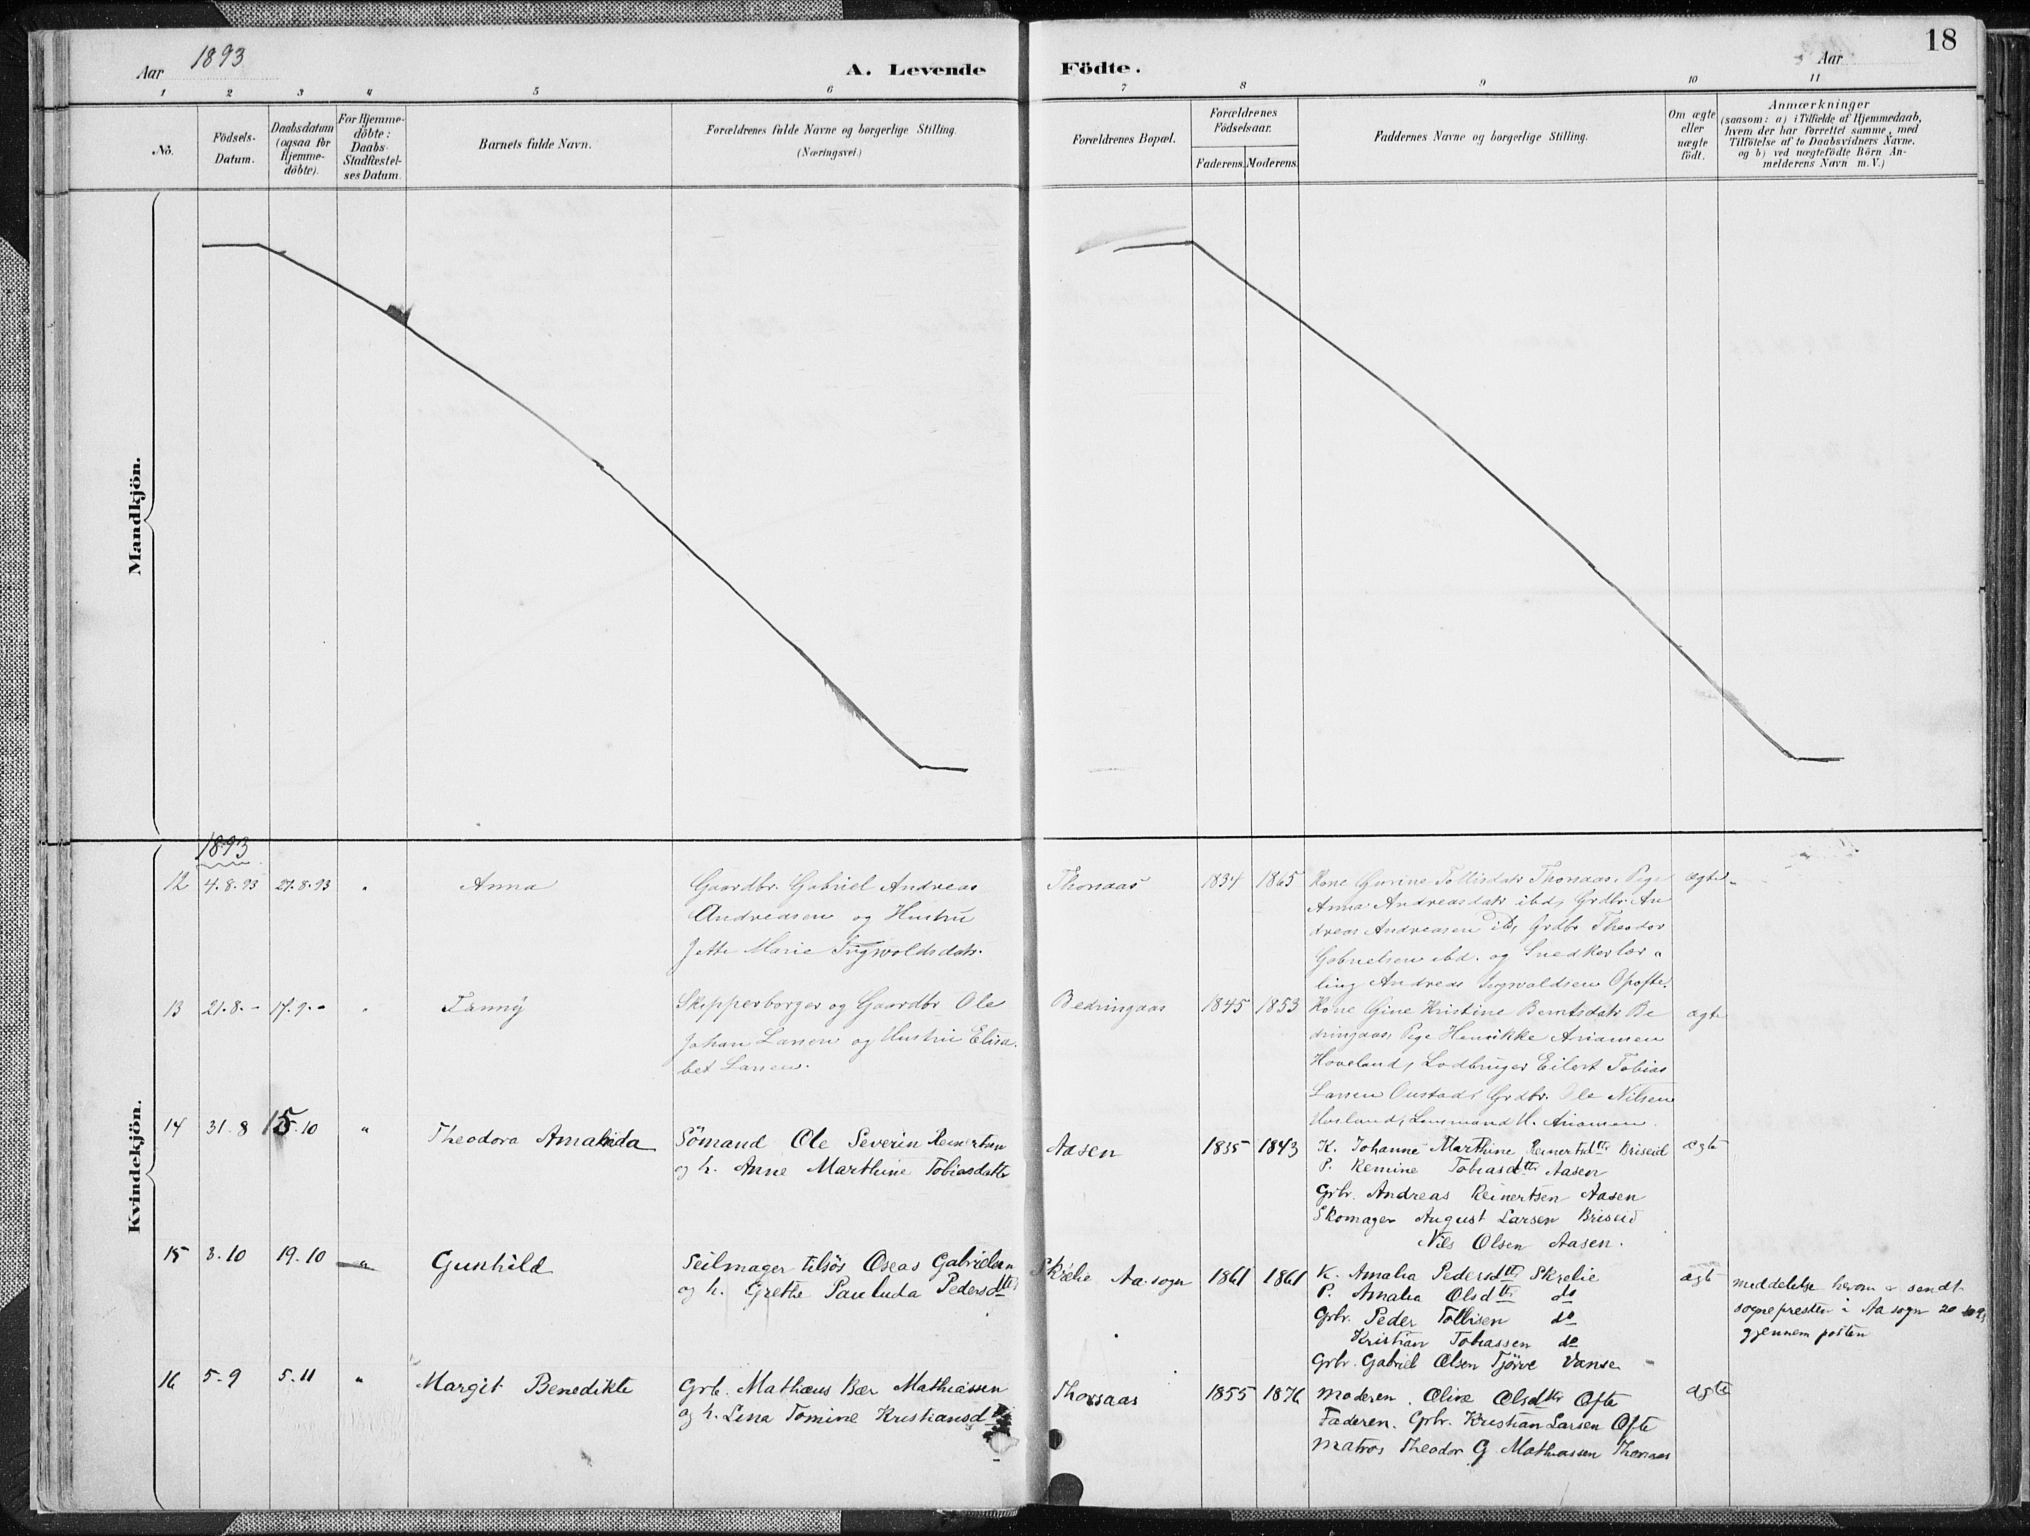 Aar 1893
A. Levende Födte.
Aar
18
1 2 3 4 5 6 7 8 9 10 11
No.
Födsels-
Datum.
Daabsdatum
(ogsaa for
Hjemme-
döbte).
For Hjemme-
döbte:
Daabs-
Stadfæstel-
ses Datum.
Barnets fulde Navn.
Forældrenes fulde Navne og borgerlige Stilling.
(Næringsvei.)
Forældrenes Bopæl.
Forældrenes
Födselsaar.
Faderens. Moderens.
Faddernes Navne og borgerlige Stilling.
Om ægte
eller
uægte
födt.
Anmærkninger
(saasom: a) i Tilfælde af Hjemmedaab,
hvem der har forrettet samme, med
Tilföielse af to Daabsvidners Navne.
og b) ved uægtefödte Börn An-
melderens Navn m. V.)
Mandkjön.
Kvindekjön.
1893
12 4.8.93 27.8.93 " Anna
Gaardbr. Gabriel Andreas
Andreasen og Hustru
Jette Marie Ingvoldsdatr.
Thorsaas 1834 1865
Kone Gurine Tollisdatr Thorsaas, Pige
Anna Andreasdatr ibd, Grdbr. An
dreas Andreasen ibd, Grdbr Theodor
Gabrielsen ibd. og Snedkerlær-
ling Andreas Ingvoldsen Opofte.
ægte
13 21.8.- 17.9.- " Fanny
Skipperborger og Gaardbr. Ole
Johan Larsen og Hustru Elisa
bet Larsen.
Bedringaas 1845 1853
Kone Gine Kristine Berntsdatr Be
dringaas, Pige Henrikke Ariansen
Hoveland, Lodbruger Eilert Tobias
Larsen Oustad, Grdbr. Ole Nilsen
Lensmand H. Ariansen.
ægte
14 31.8 15.10 " Theodora Amalinda
Sömand Ole Severin Reinertsen
og h. Anne Marthine Tobiasdatte
Aasen 1835 1843
K. Johanne Marthine Reinertsdtt Briseid
P. Remine Tobiasdtt Aasen
Grbr. Andreas Reinertsen Aasen
Skomager August Larsen Briseid
Nils Olsen Aasen.
ægte
15 3.10 19.10 " Gunhild
Seilmager tilsös Oseas Gabrielsen
og h. Grethe Paulinda Pedersdtt
Skrelie Aa sogn 1861 1861
K. Amalia Pedersdtt Skrelie
P. Amalia Olsdtt do
Grbr. Peder Tollisen do
Kristian Tobiassen do
Grbr. Gabriel Olsen Tjörve Vanse
ægt
meddelelse herom er sendt
sognepresten i Aa sogn 20
gjennem posten
16 5.9 5.11 " Margit Benedikte
Grb. Mathæus Bær Mathiassen
og h. Lina Tomine Kristiansdtt
Thorsaas 1855 1876
Moderen. Olive Olsdtr Ofte
Faderen. Grbr. Kristian Larsen Ofte
Matros Theodor G Mathiassen Thorsaas
ægte